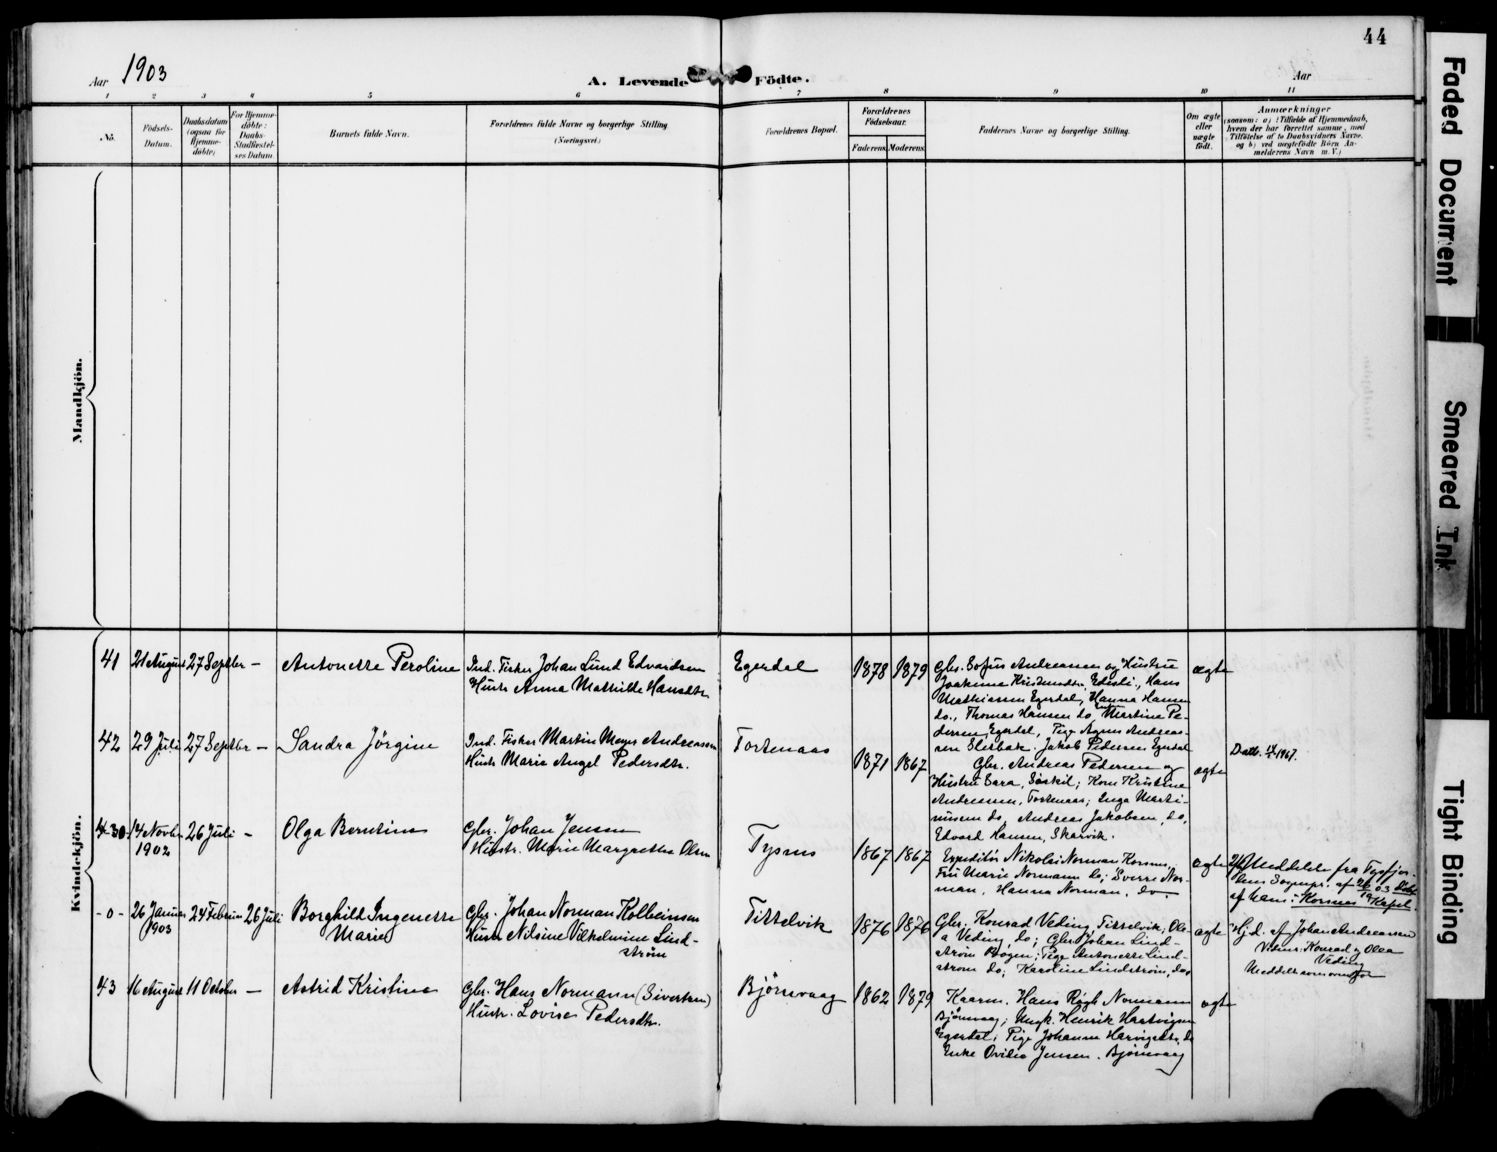 44
Aar 1903
A. Levende Födte.
Aar
1 2 3 4 5 6 7 8 9 10 11
No.
Födsels-
Datum.
Daabsdatum
(ogsaa for
Hjemme-
döbte)
For Hjemme-
döbte:
Daabs-
Stadfæstel-
ses Datum
Barnets fulde Navn.
Forældrenes fulde Navne og borgerlige Stilling
(Næringsvei)
Forældrenes Bopæl.
Forældrenes
Födselsaar.
Faderens.
Moderens.
Faddernes Navne og borgerlige Stilling.
Om ægte
eller
uægte
födt.
Anmærkninger
(saasom: a) i Tilfælde af Hjemmedaab,
hvem der har forrettet samme, med
Tilföielse af to Daabsvidners Navne,
og b) ved uægtefödte Börn An-
melderens Navn m. V.)
Mandkjön.
Kvindekjön.
41
21 August
27 Septbr
—
Antonette Peroline
Ind. Fisker Johan Lund Edvardsen
Hustr Anna Mathilde Hansdtr.
Egerdal
1878
1879
Gbr. Sofus Andreasen og Hustru
Joakima Kristensdtr, Hans
Mathiasen Egerdal, Hanna Hansen
do., Thomas Hansen do, Martine Pe-
dersen Egerdal, Pige Agnes Andreas-
sen Jakob Pedersen Egerdal
ægte
42
29 Juli
27 Septbr
—
Sandra Jörgine
Ind. Fisker Martin Meyer Andreassen
Hustr Marie Angel Pedersdtr.
Tortenaas
1871
1867
Gbr. Andreas Pedersen og
Hustru Sara, Sørkil; Kone Kristine
Andreasen, Tortenaas; Inga Marti-
nussen do, Andreas Jakobsen do,
Edvard Hansen, Skarvik.
ægte
1967.
30
14 Novbr
1902
26 Juli
—
Olga Berntine
Gbr. Johan Jensen
Hustr. Marie Margrethe Olsen
Tysnes
1867
1867
Expeditör Nikolai Norman Korsnes,
Fru Marie Normann do; Sverre Nor-
man, Hanna Norman, do
ægte
Meddelt fra Tysfjor-
dens Sognepr. af 03
af ham i Korsnes Kapel.
- 0 -
26 Januar
1903
24 Februar
26 Juli
Borghild Ingenette
Marie
Gbr. Johan Norman Kolbeinsen
Hustr Nilsine Vilhelmine Lind-
strøm
Tittelvik
1876
1876
Gbr. Konrad Veding, Tittelvik, Ole-
a Veding do; Gbr Johan Lind-
strøm Bogen; Pige Antonette Lind-
strøm do; Karoline Lindstrøm, do
ægte
Hj.d. af Johan Andreassen
Vidner: Konrad og Olea
Veding
Meddelt som ovenfor
43
16 August
11 October
—
Astrid Kristine
Gbr. Hans Normann (Sivertsen)
Hustr. Lovise Pedersdtr.
Bjørnvaag
1862
1879
Kaarm. Hans Normann
Bjørnvaag; Ungk. Henrik Hartvigsen
Egerdal; Pige Johanna do
Enke Ovilie Jensen. Bjørnvaag
ægte
Faded Document
Smeared Ink
Tight Binding